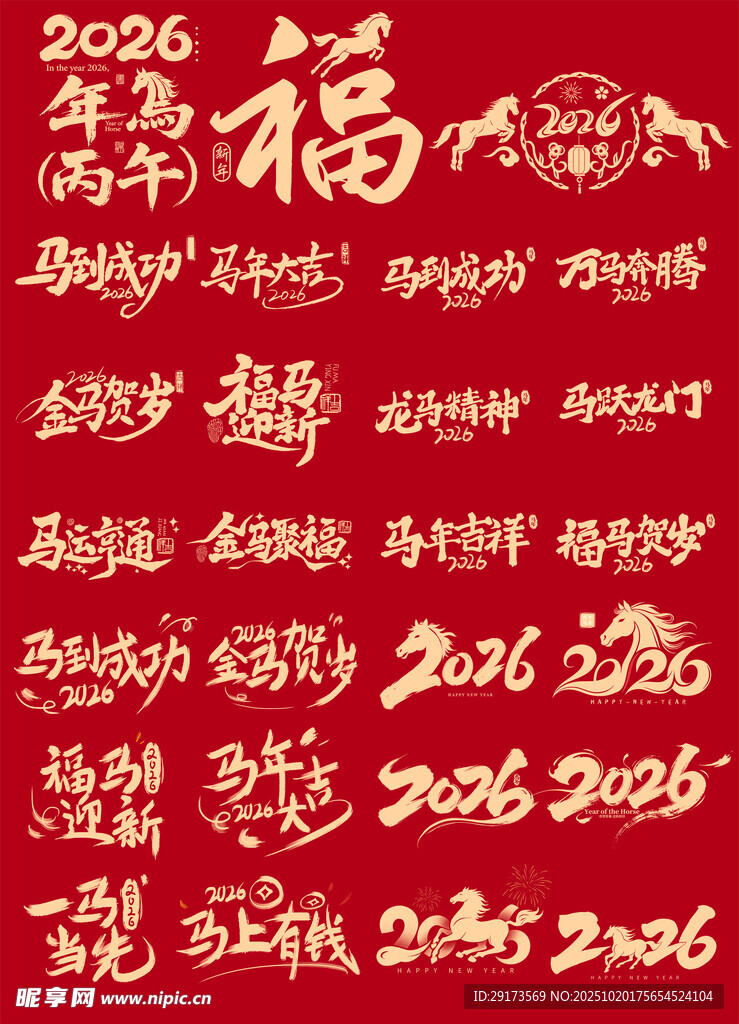 2026
In the year 2026,
年马
Year of
Horse
(丙午)
福
新年
2026
马到成功
2026
马年大吉
2026
马到成功
2026
万马奔腾
2026
2026
金马贺岁
福马
迎新
FU MA
YING XIN
龙马精神
2026
马跃龙门
2026
马运亨通
金马聚福
马年吉祥
2026
福马贺岁
2026
马到成功
2026
2026
金马贺岁
2026
HAPPY NEW YEAR
2026
HAPPY-NEW-YEAR
福马
迎新
2026
马年
2026大吉
2026
2026
Year of the Horse
一马
当先
2026
2026
马上有钱
2026
HAPPY NEW YEAR
2026
HAPPY NEW YEAR
昵享网 www.nipic.cn
ID:29173569 NO:20251020175654524104